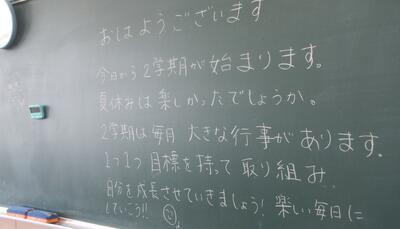 おはようございます
今日から2学期が始まります。
夏休みは楽しかったでしょうか。
2学期は毎月 大きな行事があります。
1つ1つ 目標を持って 取り組み
自分を成長させていきましょう! 楽しい毎日に
していこう!!